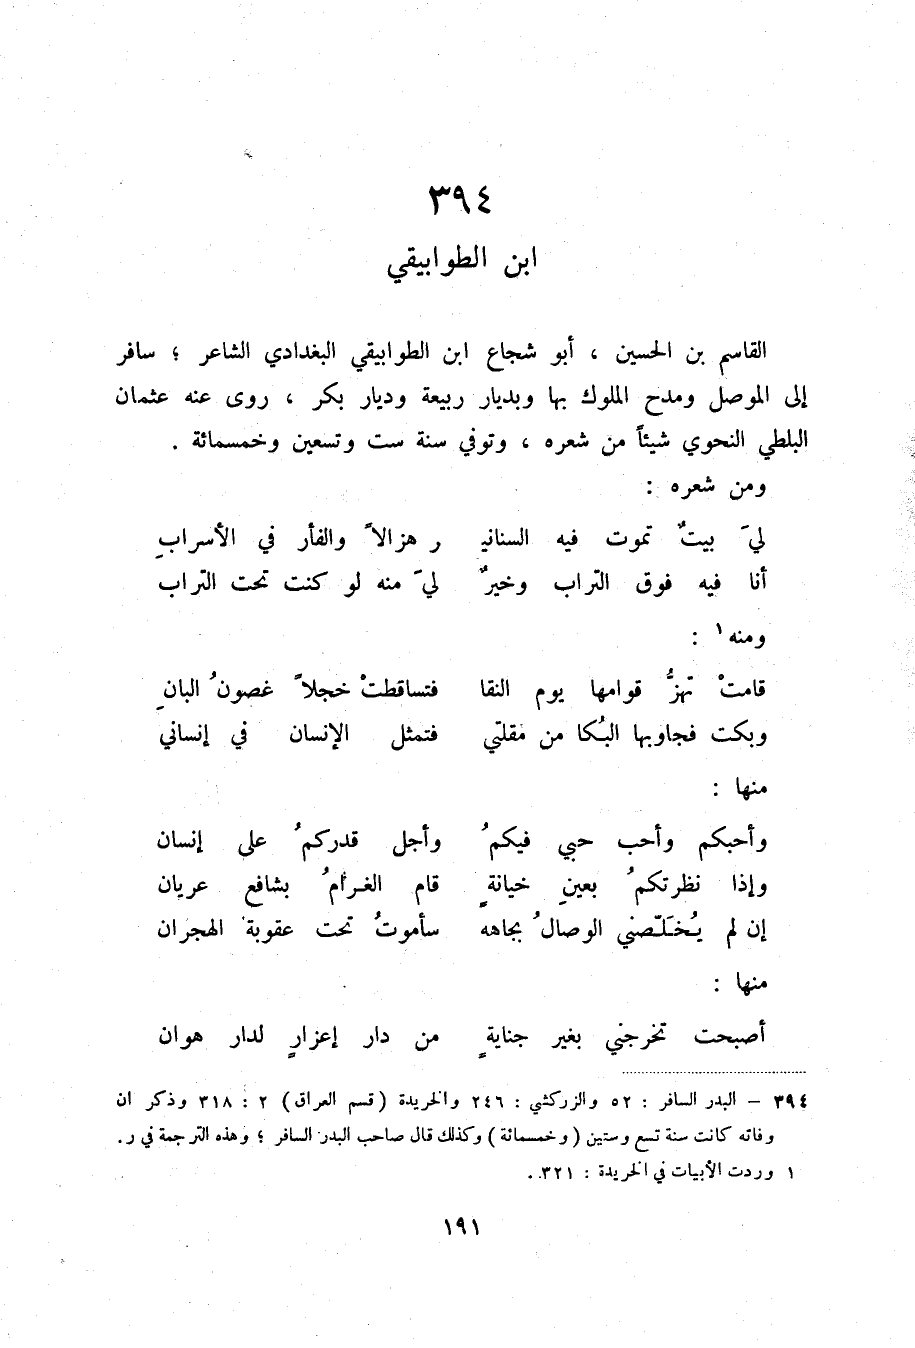 ٣٩٤
ابن الطوابيقي
القاسم بن الحسين ، أبو شجاع ابن الطوابيقي البغدادي الشاعر ؛ سافر
إلى الموصل ومدح الملوك بها وبديار ربيعة وديار بكر ، روى عنه عثمان
البلطي النحوي شيئاً من شعره ، وتوفي سنة ست وتسعين وخمسمائة .
ومن شعره :
ليَ بيتٌ تموت فيه السنانيـ ر هزالاً والفأر في الأسرابِ
أنا فيه فوق التراب وخيرٌ ليَ منه لو كنت تحت التراب
ومنه١ :
قامتْ تهزُّ قوامها يوم النقا فتساقطتْ خجلاً غصونُ البانِ
وبكت فجاوبها البُكا من مقلتي فتمثل الإنسان في إنساني
منها :
وأحبكم وأحب حبي فيكمُ وأجل قدركمُ على إنسان
وإذا نظرتكمُ بعينِ خيانةٍ قام الغرامُ بشافع عريان
إن لم يُخَلّصني الوصالُ بجاهه سأموتُ تحت عقوبة الهجران
منها :
أصبحت تخرجني بغير جنايةٍ من دار إعزازٍ لدار هوان
٣٩٤ – البدر السافر : ٥٢ والزركشي : ٢٤٦ والخريدة (قسم العراق) ٢ : ٣١٨ وذكر ان
وفاته كانت سنة تسع وستين (وخمسمائة) وكذلك قال صاحب البدر السافر ؛ وهذه الترجمة في ر.
١ وردت الأبيات في الخريدة : ٣٢١ .
١٩١